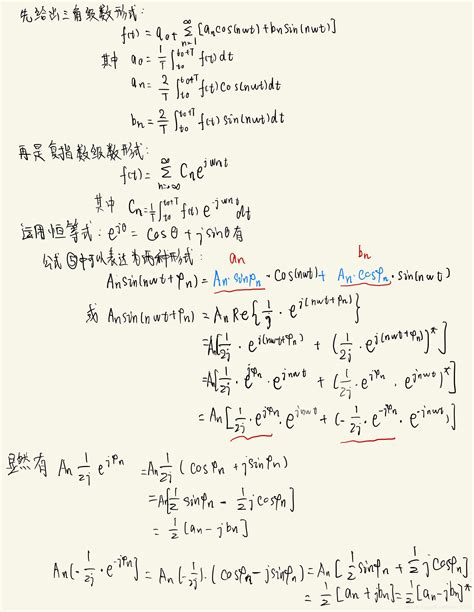 先给出三角级数形式:
f(t) = a₀ + ∑_{n=1}^{∞} [aₙcos(nωt) + bₙsin(nωt)]
其中 a₀ = 1/T ∫_{t₀}^{t₀+T} f(t) dt
aₙ = 2/T ∫_{t₀}^{t₀+T} f(t) cos(nωt) dt
bₙ = 2/T ∫_{t₀}^{t₀+T} f(t) sin(nωt) dt
再是复指数级数形式:
f(t) = ∑_{n=-∞}^{∞} Cₙ e^{jωnt}
其中 Cₙ = 1/T ∫_{t₀}^{t₀+T} f(t) e^{-jωnt} dt
运用恒等式: e^{jθ} = cosθ + jsinθ 有
公式⑤中可以表达为两种形式:
aₙ bₙ
Aₙsin(nωt+φₙ) = Aₙ·sinφₙ·cos(nωt) + Aₙ·cosφₙ·sin(nωt)
或 Aₙsin(nωt+φₙ) = AₙRe{1/j · e^{j(nωt+φₙ)}}
= Aₙ[1/2j · e^{j(nωt+φₙ)} + (1/2j · e^{j(nωt+φₙ)})*]
= Aₙ[1/2j · e^{jφₙ} · e^{jnωt} + (1/2j · e^{jφₙ} · e^{jnωt})*]
= Aₙ[1/2j · e^{jφₙ} · e^{jnωt} + (-1/2j · e^{-jφₙ} · e^{-jnωt})]
显然有 Aₙ 1/2j e^{jφₙ} = Aₙ 1/2j (cosφₙ + jsinφₙ)
= Aₙ[1/2 sinφₙ - 1/2 jcosφₙ]
= 1/2 [aₙ - jbₙ]
Aₙ[-1/2j · e^{-jφₙ}] = Aₙ(-1/2j)·(cosφₙ - jsinφₙ) = Aₙ[1/2 sinφₙ + 1/2 jcosφₙ]
= 1/2 [aₙ + jbₙ] = 1/2 [aₙ - jbₙ]*